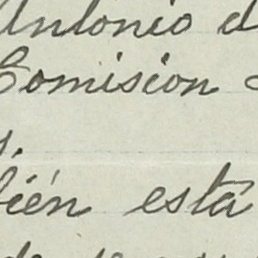 Antonio d
Comision
s.
bién está